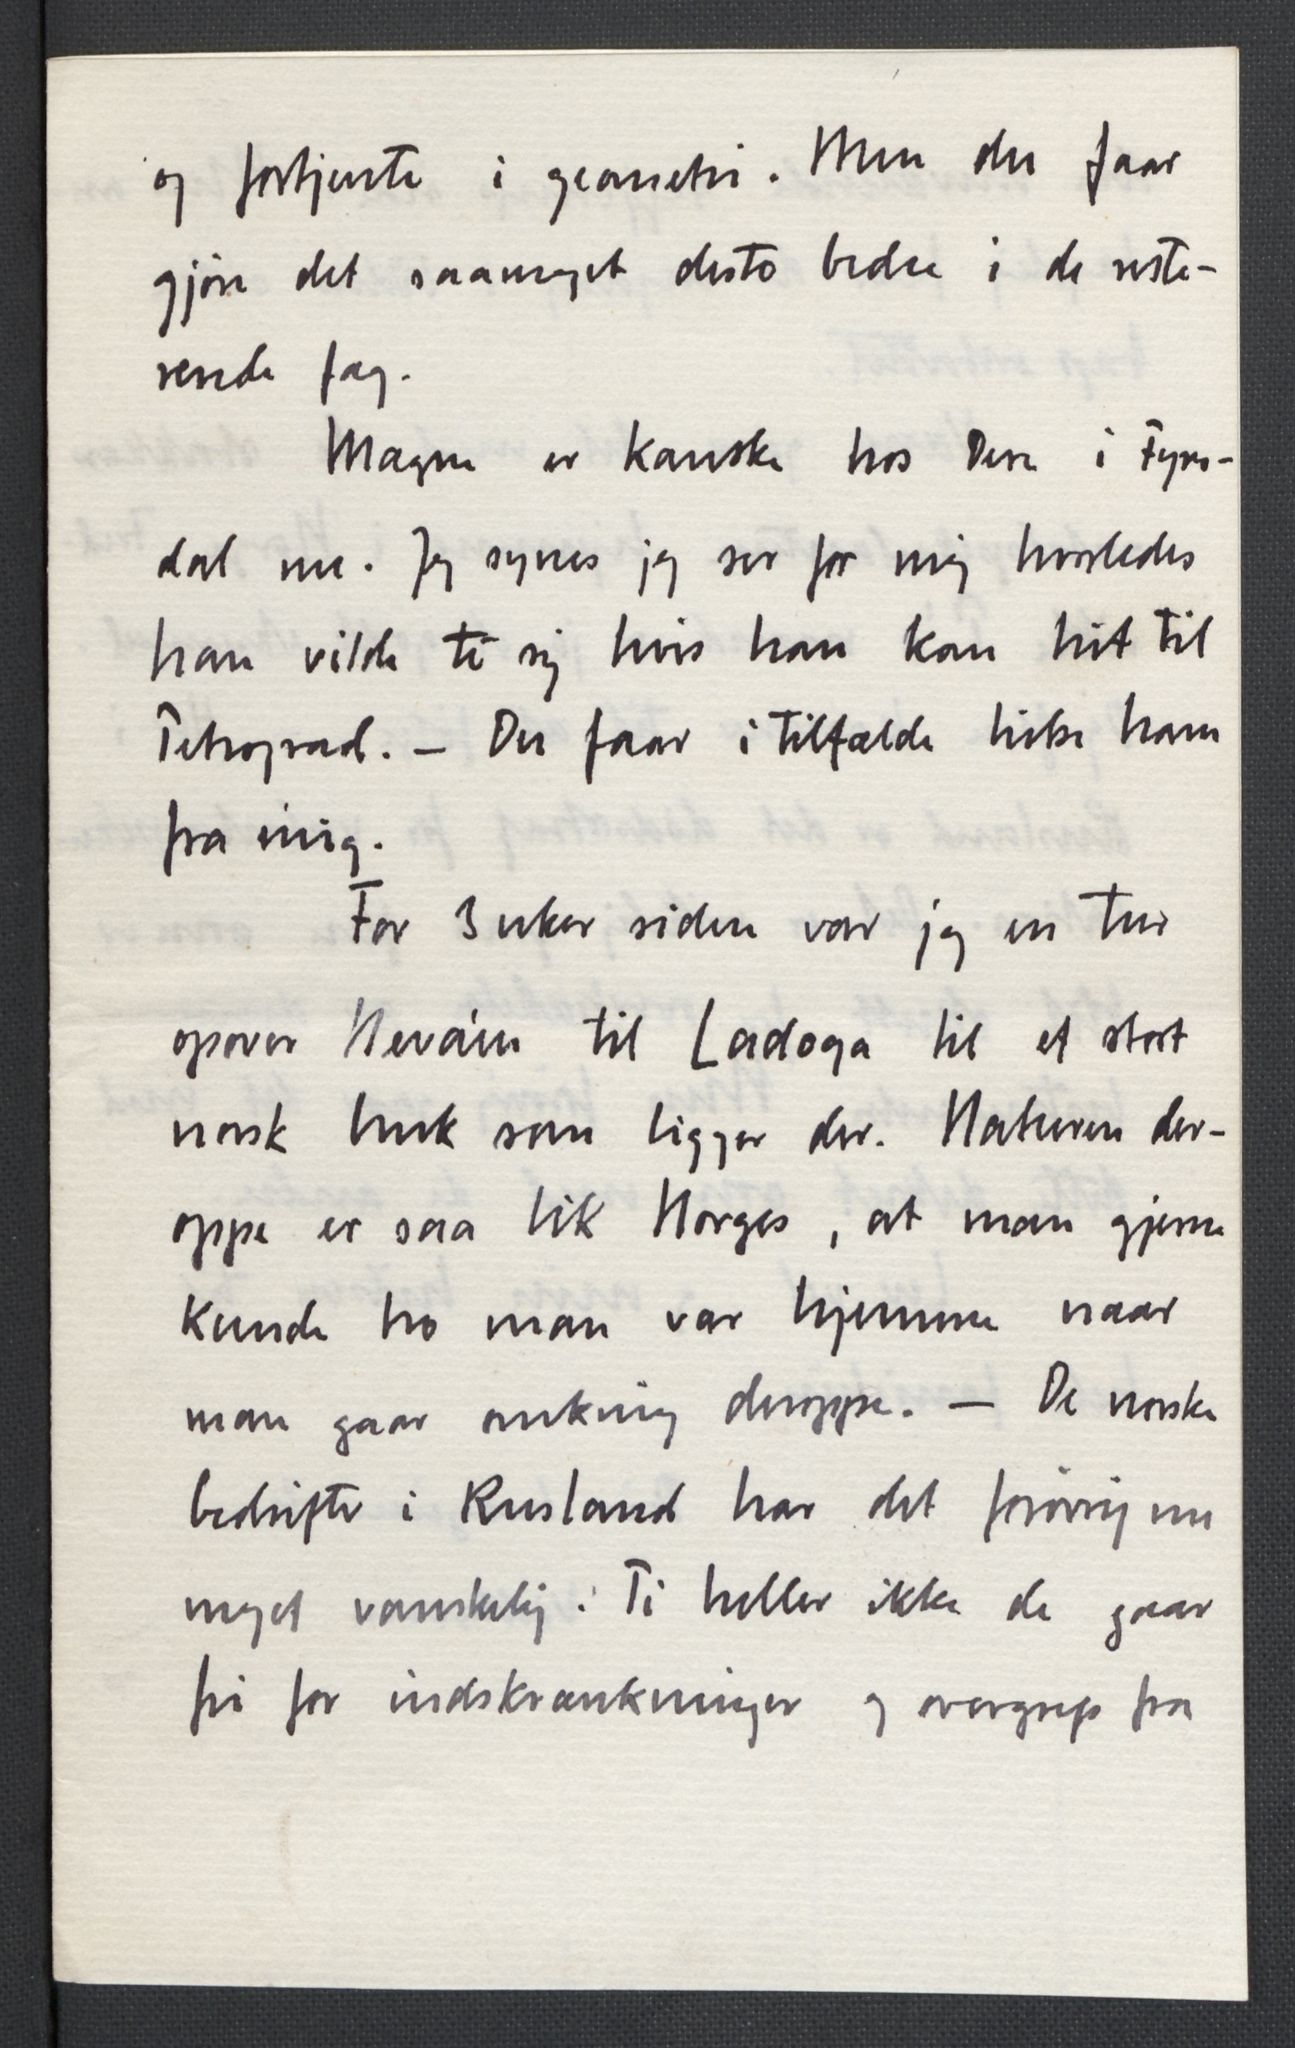 og fortjente i geometri. Men du faar
gjøre det saameget desto bedre i de reste-
rende fag.
Magne er kanske hos Dere i Fyres-
dal nu. Jeg synes jeg ser for mig hvorledes
han vilde te sig hvis han kan hit til
Petrograd. — Du faar i tilfælde hilse ham
fra mig.
For 3 uker siden var jeg en tur
opover Neváen til Ladoga til et stort
norsk bruk som ligger der. Naturen der-
oppe er saa lik Norges, at man gjerne
kunde tro man var hjemme naar
man gaar omkring deroppe. — De norske
bedrifter i Rusland har det forøvrig nu
meget vanskelig. Ti heller ikke de gaar
fri for indskrænkninger og overgrep fra